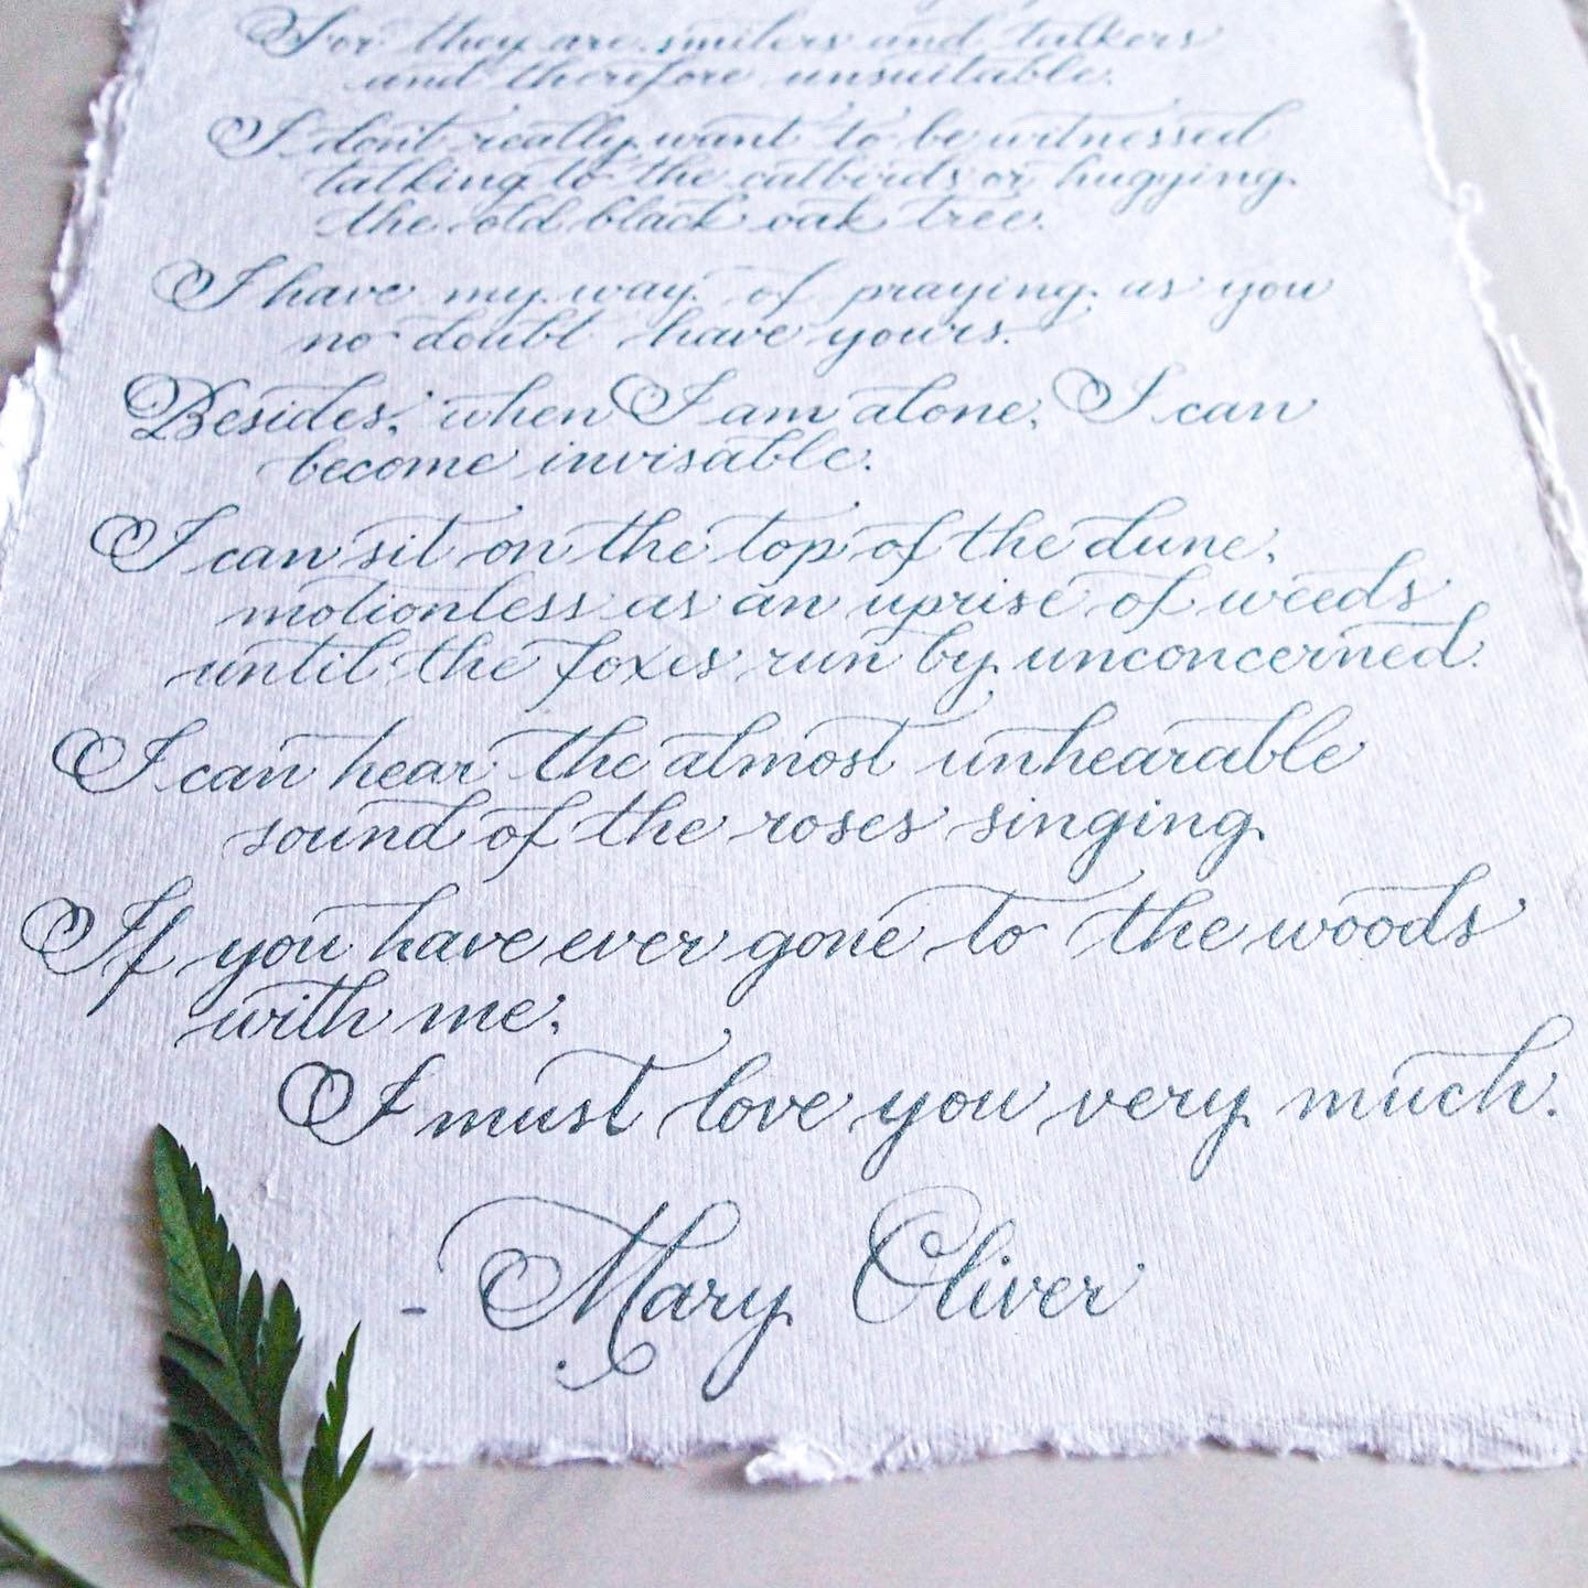 For they are smilers and talkers
and therefore unsuitable.
I don't really want to be witnessed
talking to the catbirds or hugging
the old black oak tree.
I have my way of praying as you
no doubt have yours.
Besides, when I am alone, I can
become invisable.
I can sit on the top of the dune,
motionless as an uprise of weeds
until the foxes run by unconcerned.
I can hear the almost unhearable
sound of the roses singing.
If you have ever gone to the woods
with me,
I must love you very much.
- Mary Oliver